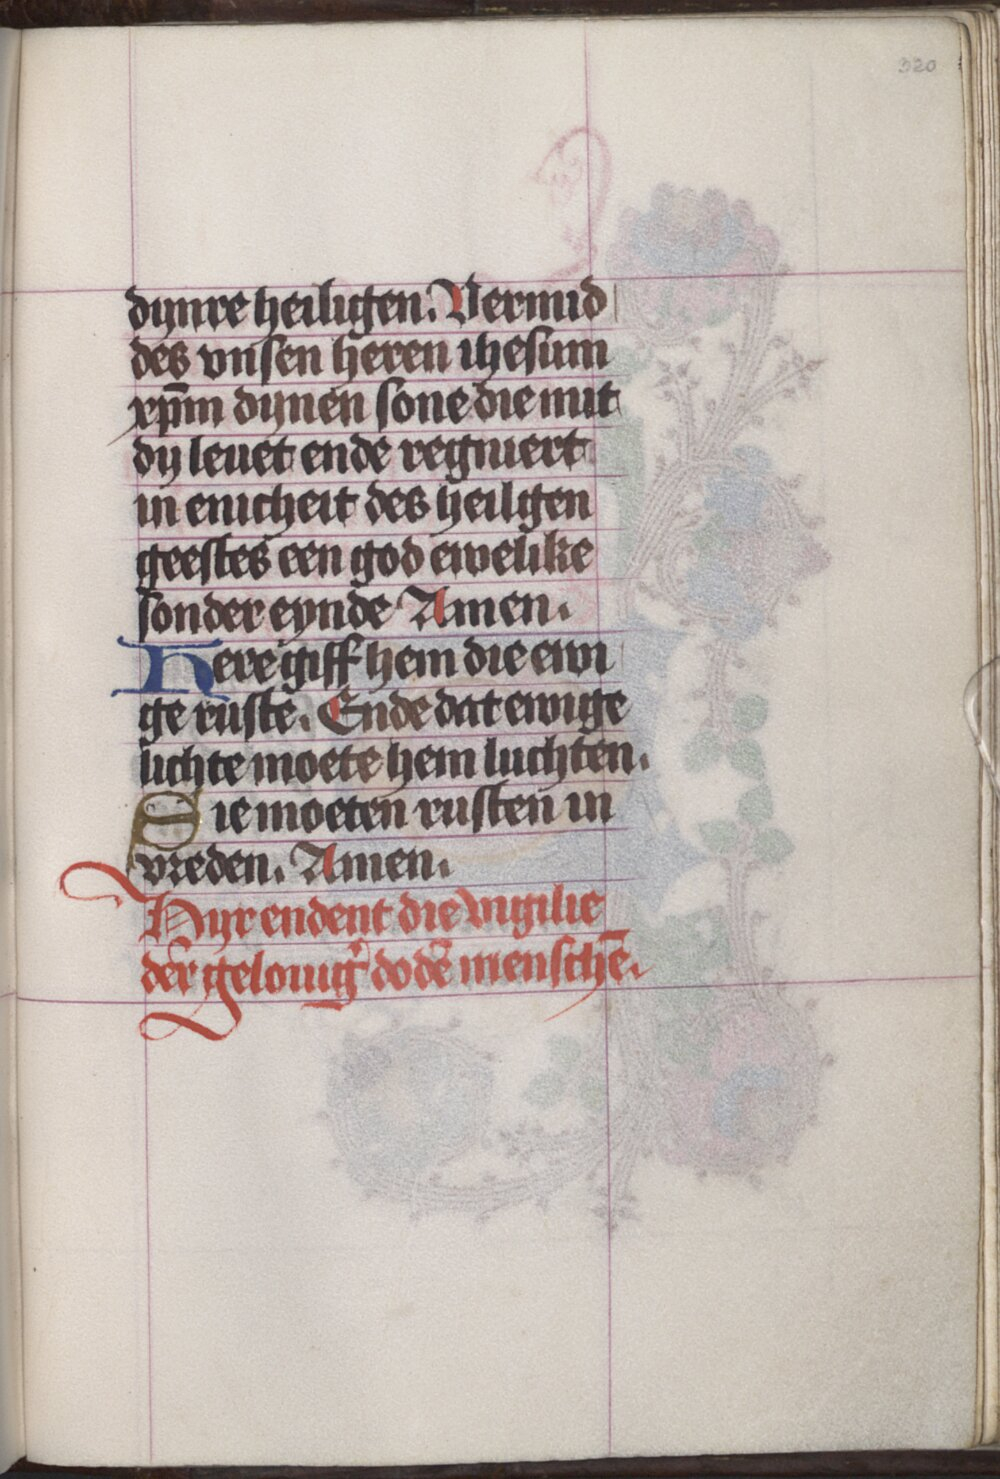 320
dynre heiligen. Vermid
des vnsen heren ihesum
xp̄m dynen sone die mit
dy leuet ende regniert
in enicheit des heiligen
geestes een god ewelike
sonder eynde Amen.
Here giff hem die ewi
ge ruste. Ende dat ewige
lichte moete hem luchten.
Sie moeten rusten in
vreden. Amen.
Hyr endent die vigilie
der gelouig͛ dodē menschē.